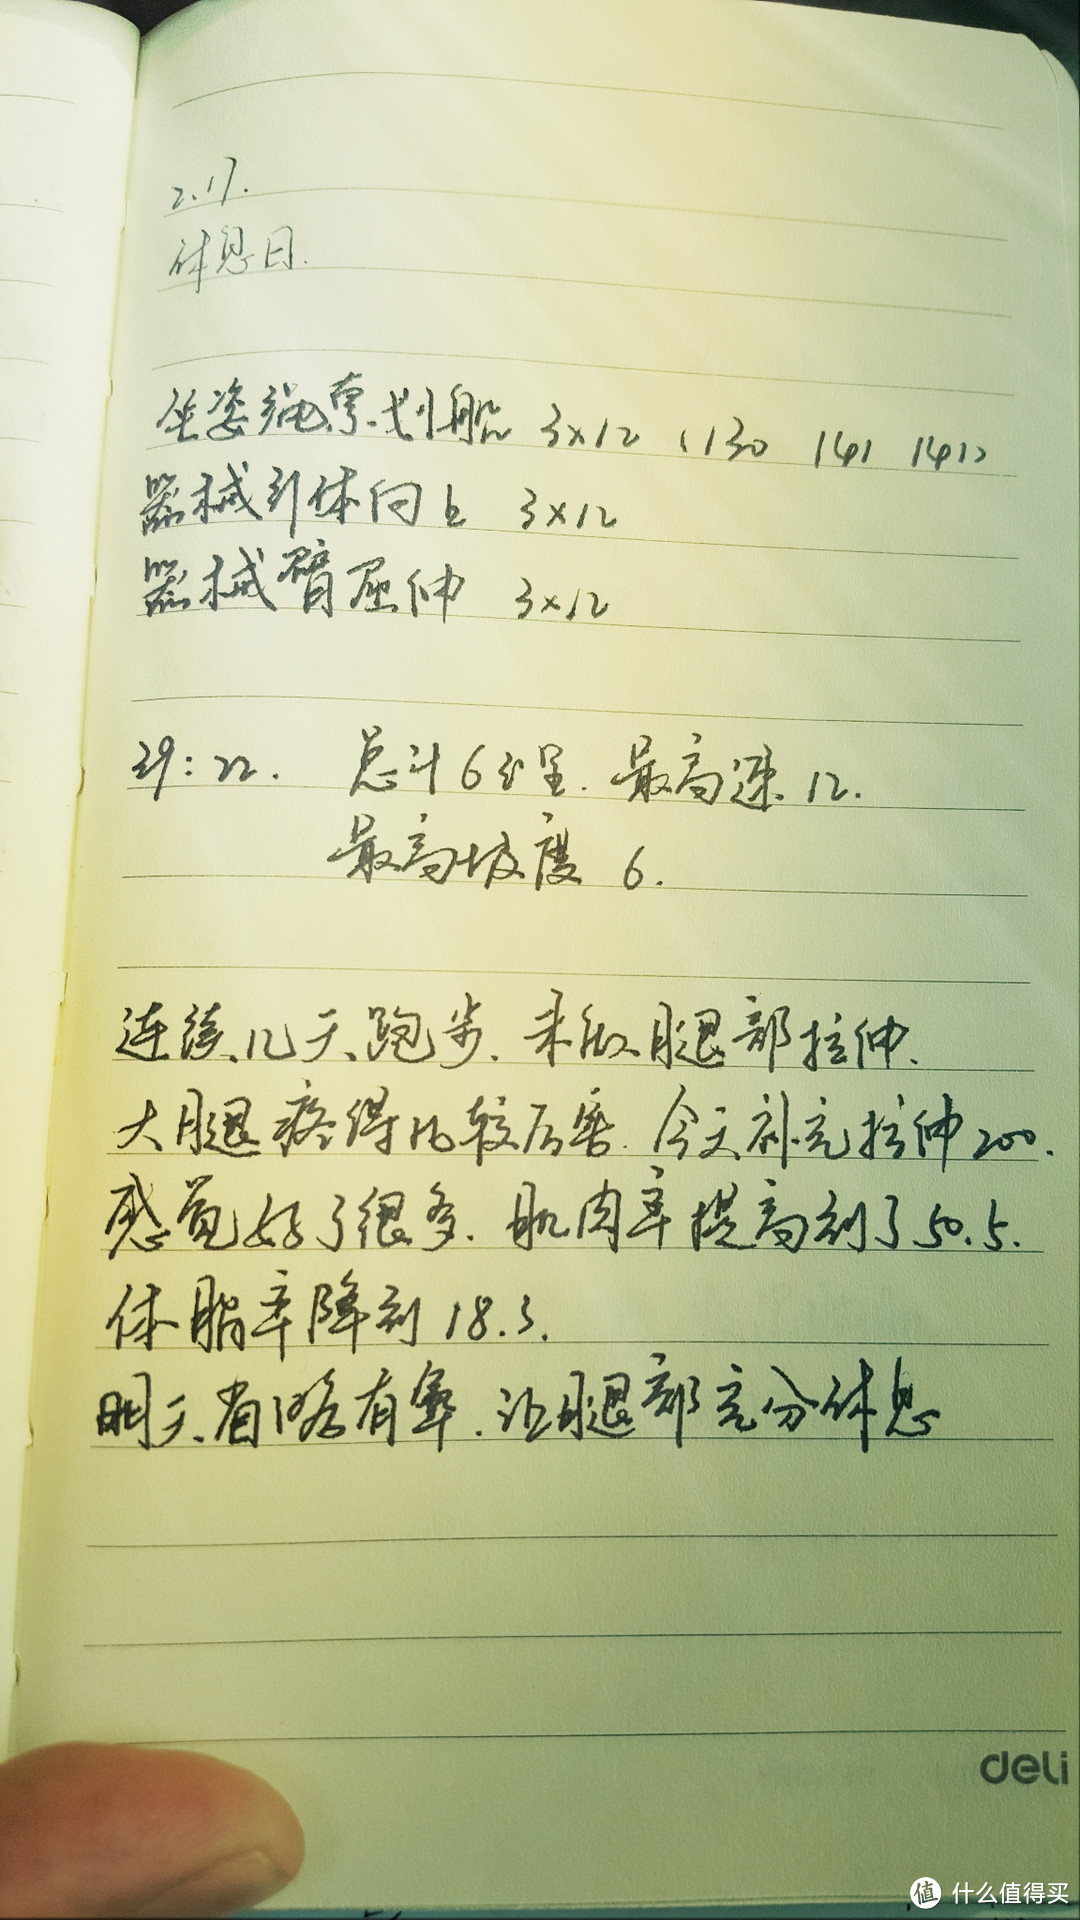 2.17.
休息日.
坐姿绳索划船 3×12 (130 141 141)
器械引体向上 3×12
器械臂屈伸 3×12
29:22. 总计6公里. 最高速 12.
最高坡度 6.
连续几天跑步. 未做腿部拉伸.
大腿疼得比较厉害. 今天补充拉伸200.
感觉好了很多. 肌肉率提高到了50.5.
体脂率降到 18.3.
明天省略有氧. 让腿部充分休息
deli
值 什么值得买